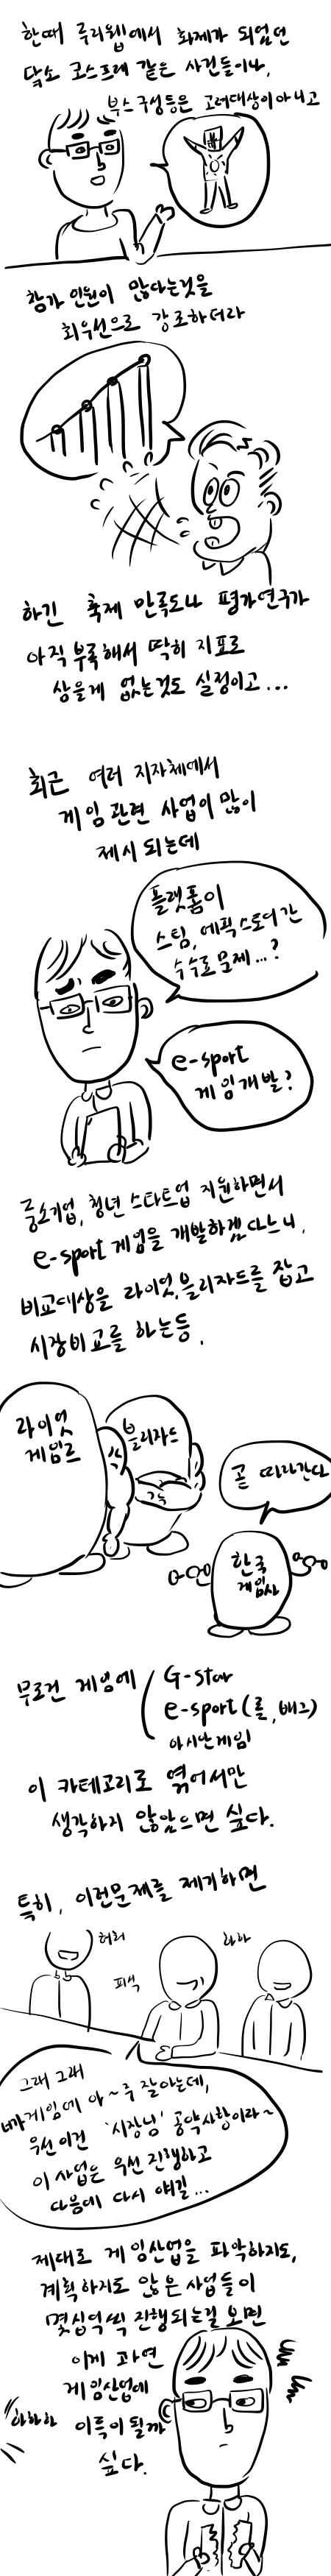 한때 루리웹에서 화제가 되었던
닭소 코스프레 같은 사건들이나,
부스구성등은 고려대상이 아니고
참가 인원이 많다는것을
최우선으로 강조하더라
하긴 축제 만족도나 평가연구가
아직 부족해서 딱히 지표로
삼을게 없는것도 실정이고...
최근 여러 지자체에서
게임 관련 사업이 많이
제시 되는데
플랫폼이
스팀, 에픽스토어간
수수료 문제...?
e-sport
게임개발?
중소기업, 청년 스타트업 지원하면서
e-sport 게임을 개발하겠다느니,
비교대상을 라이엇,블리자드를 잡고
시장비교를 하는등.
라이엇
게임즈
블리자드
곧 따라간다
한국
게임사
무조건 게임에
G-star
e-sport (롤, 배그)
아시안게임
이 카테고리로 엮어서만
생각하지 않았으면 싶다.
특히, 이런문제를 제기하면
허허
피식
하하
그래 그래
내가게임에 아~주 잘아는데,
우선이건 '시장님' 공약사항이라~
이 사업은 우선 진행하고
다음에 다시 얘길...
제대로 게임산업을 파악하지도,
계획하지도 않은 사업들이
몇십억씩 진행되는걸 보면
이게 과연
게임산업에
하하하
이득이될까
싶다.